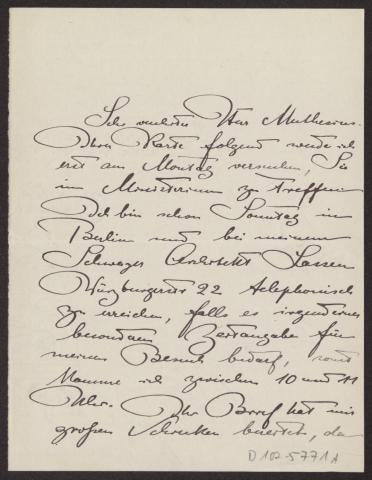 Sehr verehrter Herr Muthesius.
Ihrer Karte folgend werde ich
erst am Montag versuchen, Sie
im Ministerium zu treffen
Ich bin schon Sonntag in
Berlin und bei meinem
Schwager Architekt Lassen
Würzburgerstr 22 telephonisch
zu erreichen, falls es irgendeiner
besonderen Zeitangabe für
meinen Besuch bedarf, sonst
komme ich zwischen 10 und 11
Uhr. Ihr Brief hat mir
großen Schrecken bereitet, da
D 102-5771 A